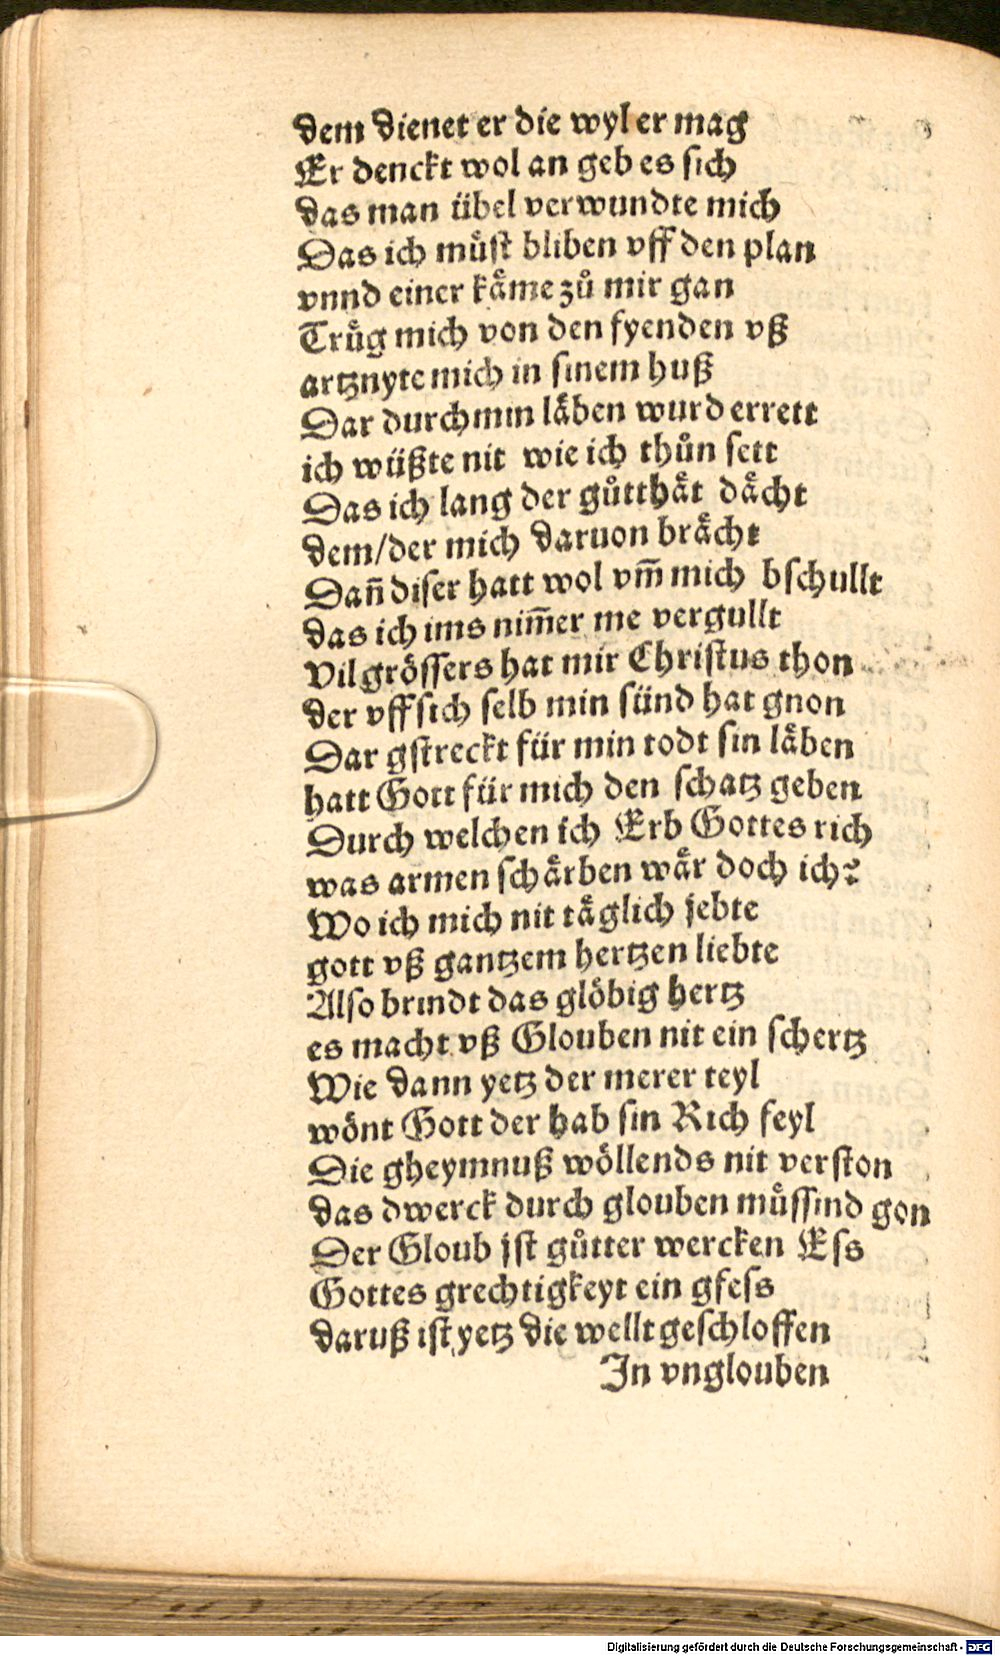 dem dienet er die wyl er mag
Er denckt wol an geb es sich
das man übel verwundte mich
Das ich muͤſt bliben vff den plan
vnnd einer kaͤme zuͦ mir gan
Truͤg mich von den fyenden vß
artznyte mich in ſinem huß
Dar durch min laͤben wurd errett
ich wüßte nit wie ich thuͦn ſett
Das ich lang der guͦtthaͤt daͤcht
dem/der mich daruon braͤcht
Dañ diſer hatt wol vm̃ mich bſchullt
das ich ims nim̃er me vergullt
Vil groͤſſers hat mir Chriſtus thon
der vff ſich ſelb min ſünd hat gnon
Dar gſtreckt für min todt ſin laͤben
hatt Gott für mich den ſchatz geben
Durch welchen ich Erb Gottes rich
was armen ſchaͤrben waͤr doch ich?
Wo ich mich nit taͤglich jebte
gott vß gantzem hertzen liebte
Alſo brindt das gloͤbig hertz
es macht vß Glouben nit ein ſchertz
Wie dann yetz der merer teyl
woͤnt Gott der hab ſin Rich feyl
Die gheymnuß woͤllends nit verſton
das dwerck durch glouben muͤſſind gon
Der Gloub jſt guͦtter wercken Eſs
Gottes grechtigkeyt ein gfeſs
daruß iſt yetz die wellt geſchloffen
In vnglouben
Digitalisierung gefördert durch die Deutsche Forschungsgemeinschaft - DFG